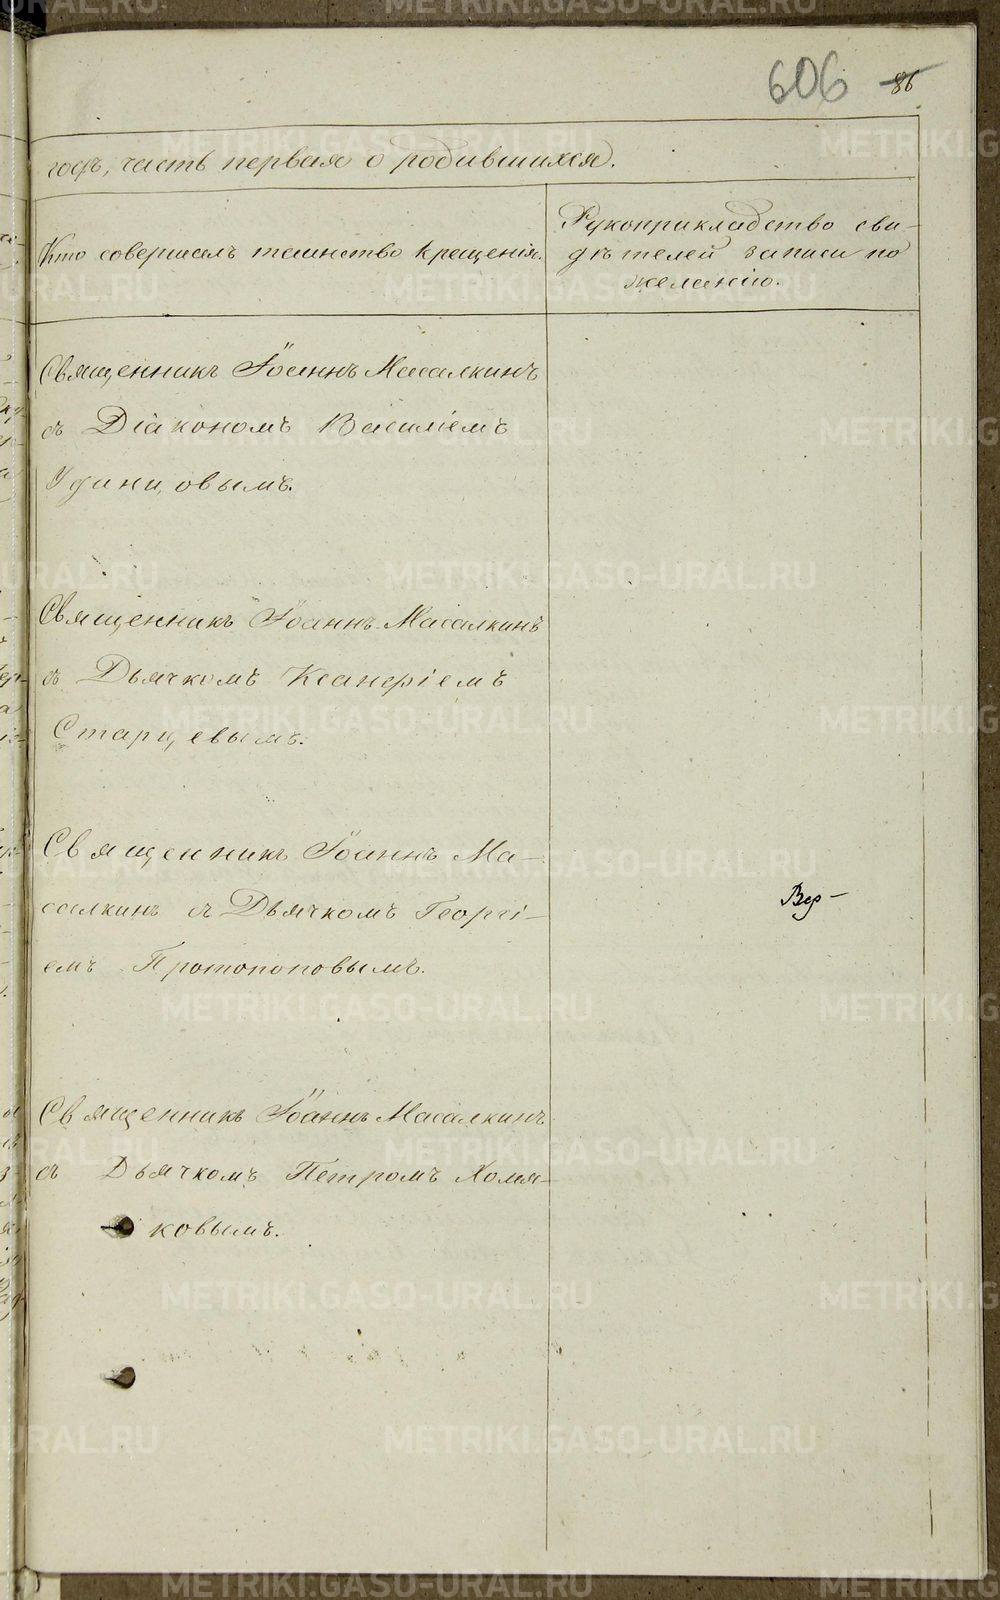 606 86
годъ, часть первая о родившихся.
Кто совершалъ таинство крещенія.
Рукоприкладство сви-
дѣтелей записи по
желанію.
Священникъ Іоаннъ Масалкинъ
съ Діакономъ Василіемъ
Удинцовымъ.
Священникъ Іоаннъ Масалкинъ
съ Дьячкомъ Ксанфіемъ
Старцевымъ.
Священникъ Іоаннъ Ма-
салкинъ съ Дьячкомъ Георгі-
емъ Протопоповымъ.
Священникъ Іоаннъ Масалкинъ
съ Дьячкомъ Петромъ Хомя-
ковымъ.
METRIKI.GASO-URAL.RU